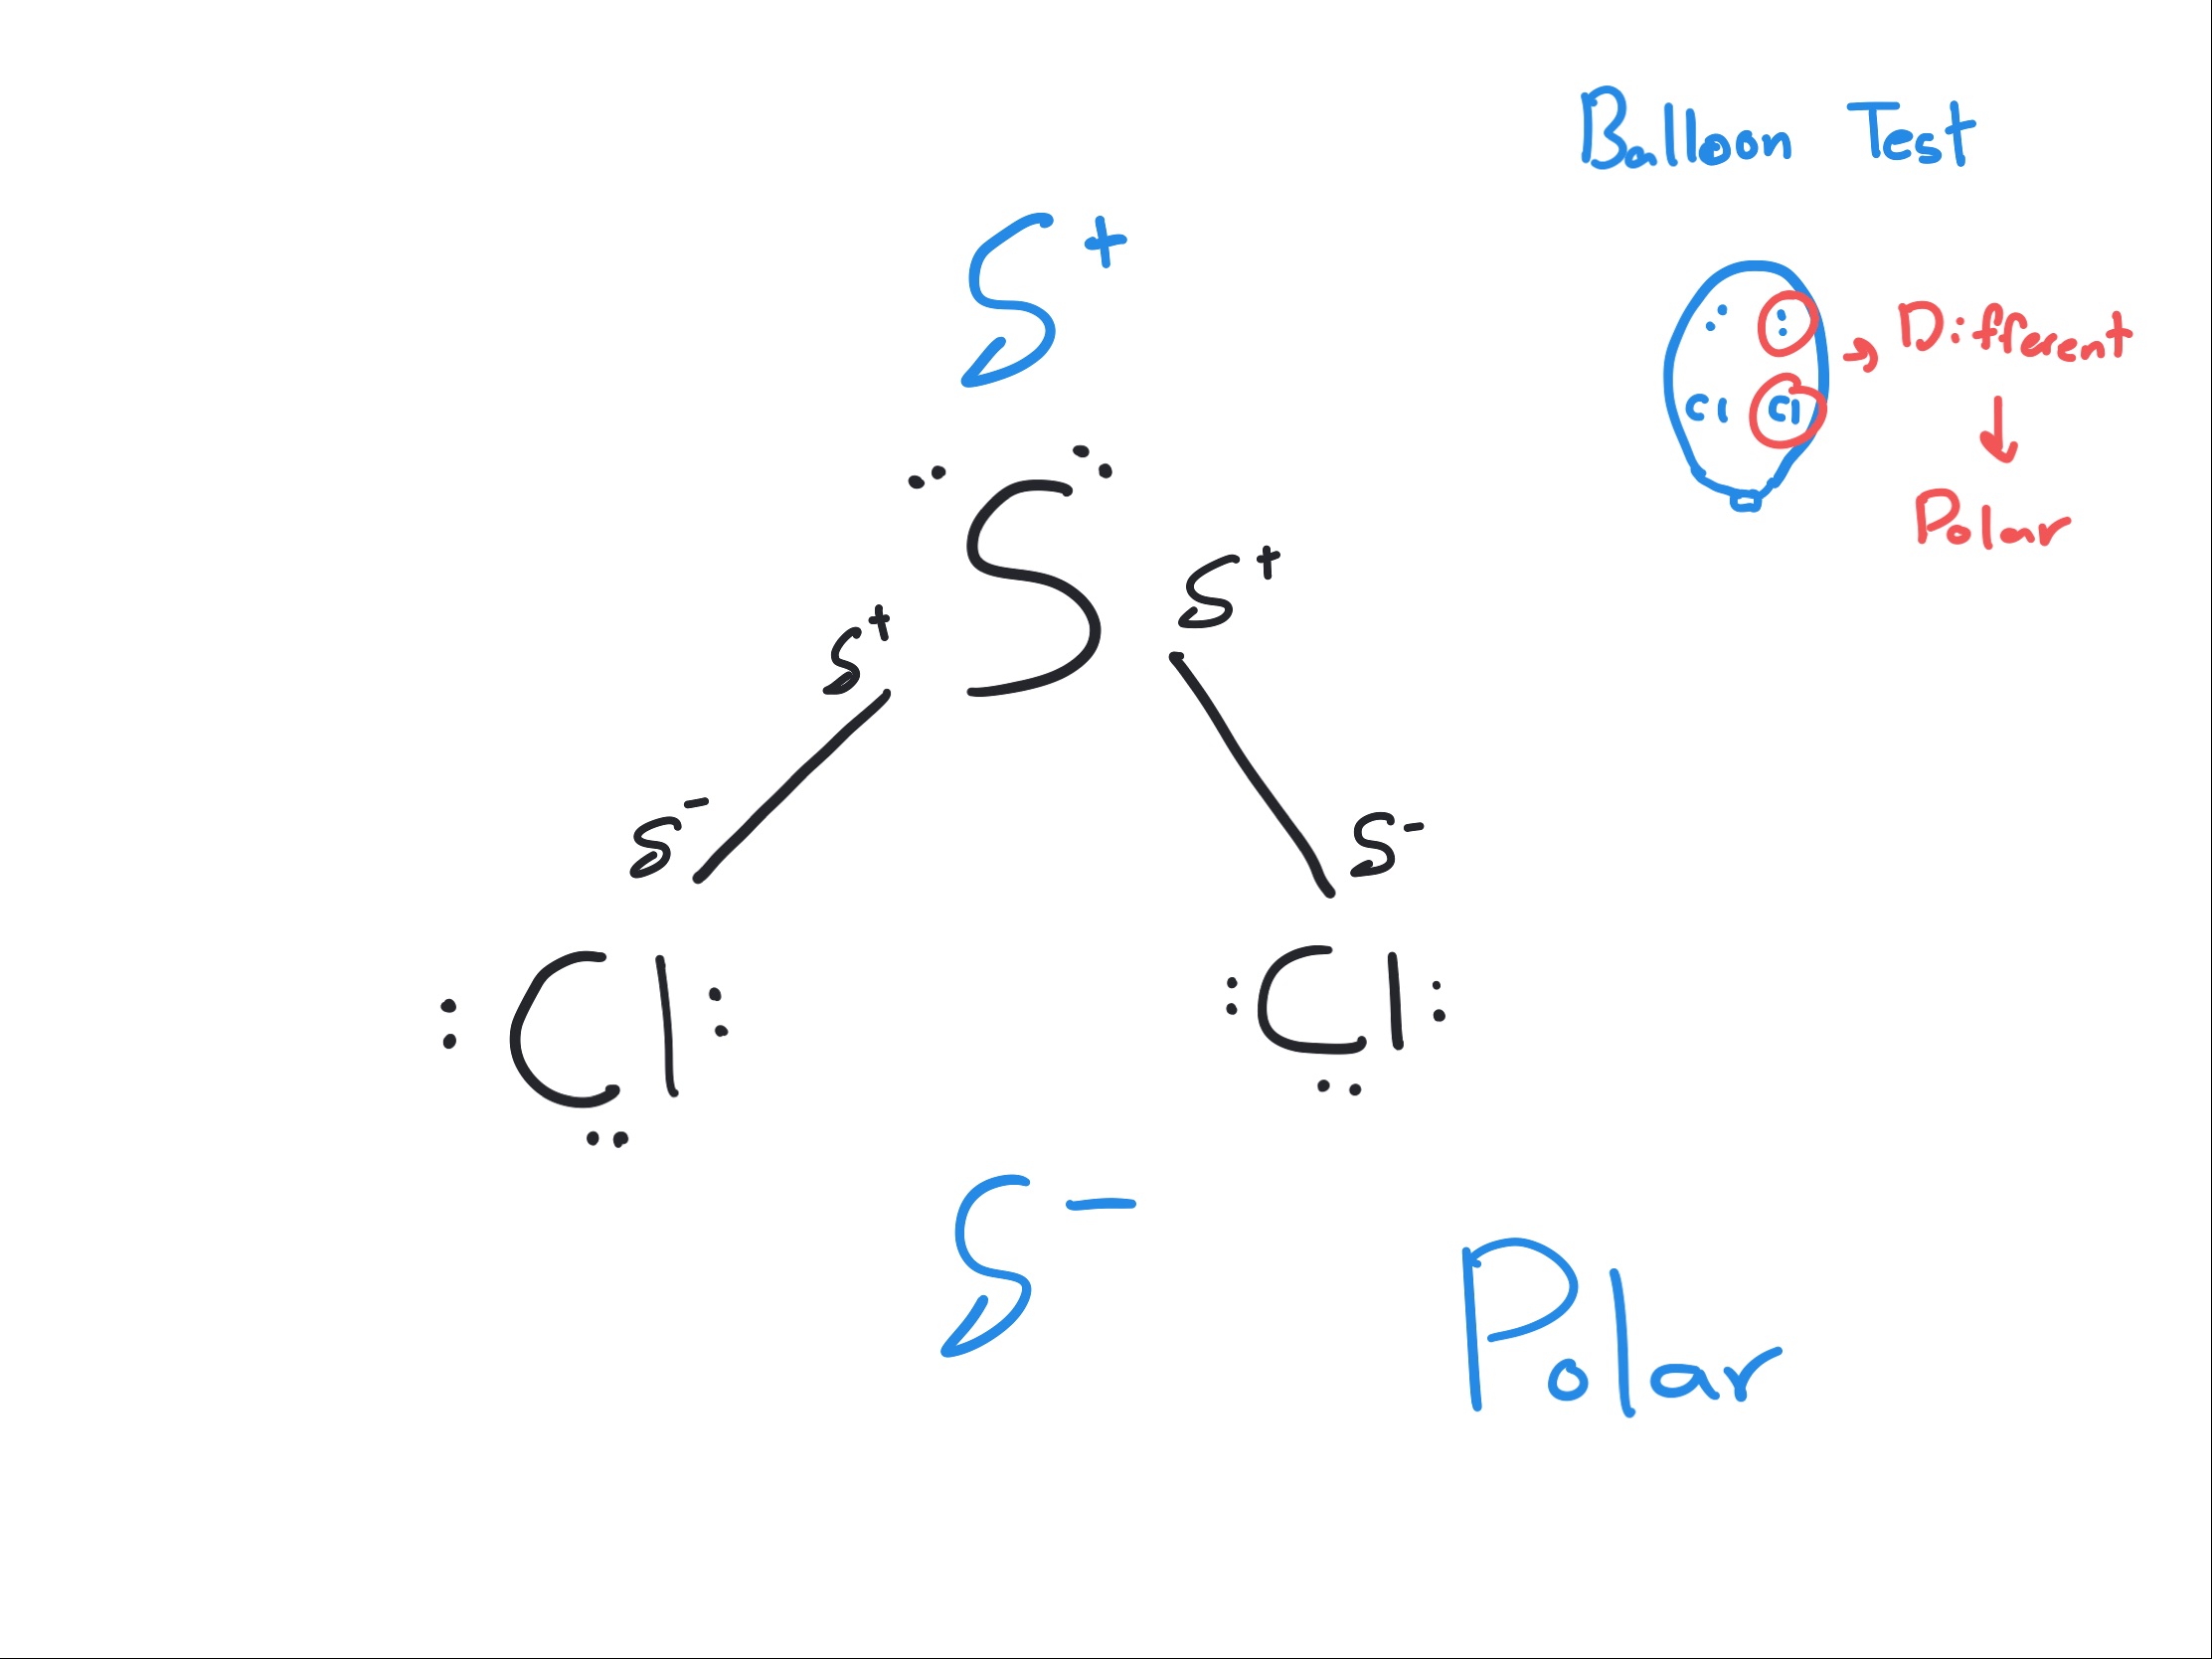 Balloon Test
δ+
S
δ+
δ+
Cl Cl
Different
Polar
δ-
δ-
Cl
Cl
δ-
Polar